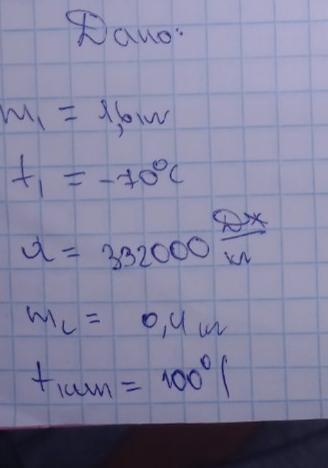 Дано:
m₁ = 1,6 кг
t₁ = -70°C
λ = 332000 Дж/кг
m_c = 0,4 кг
t_кип = 100°C